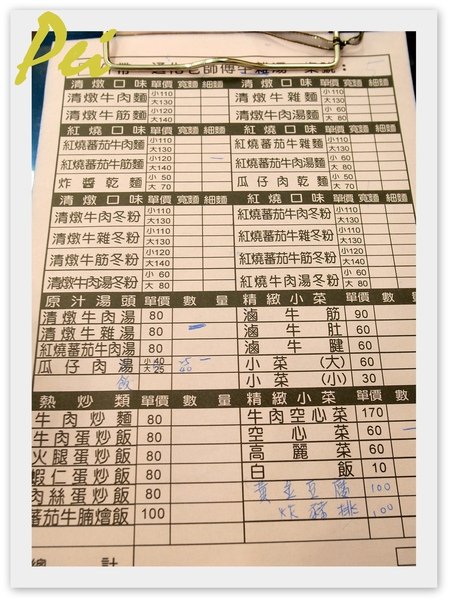 Pei
清燉口味 單價 寬麵 細麵 清燉口味 單價 寬麵 細麵
清燉牛肉麵 小110 大130 清燉牛雜麵 小110 大130
清燉牛筋麵 小120 大140 清燉牛肉湯麵 小60 大80
紅燒口味 單價 寬麵 細麵 紅燒口味 單價 寬麵 細麵
紅燒蕃茄牛肉麵 小110 大130 紅燒蕃茄牛雜麵 小110 大130
紅燒蕃茄牛筋麵 小120 大140 紅燒蕃茄牛肉湯麵 小60 大80
炸醬乾麵 小50 大70 瓜仔肉乾麵 小50 大70
清燉口味 單價 寬麵 細麵 紅燒口味 單價 寬麵 細麵
清燉牛肉冬粉 小110 大130 紅燒蕃茄牛肉冬粉 小110 大130
清燉牛雜冬粉 小110 大130 紅燒蕃茄牛雜冬粉 小110 大130
清燉牛筋冬粉 小120 大140 紅燒蕃茄牛筋冬粉 小120 大140
清燉牛肉湯冬粉 小60 大80 紅燒蕃茄牛肉湯冬粉 小60 大80
原汁湯頭 單價 數量 精緻小菜 單價 數
清燉牛肉湯 80 滷牛筋 90
清燉牛雜湯 80 滷牛肚 60
紅燒蕃茄牛肉湯 80 滷牛腱 60
瓜仔肉湯 小40 大25 小菜(大) 60
飯 小菜(小) 30
熱炒類 單價 數量 精緻小菜 單價 數
牛肉炒麵 80 牛肉空心菜 170
牛肉蛋炒飯 80 空心菜 60
火腿蛋炒飯 80 高麗菜 60
蝦仁蛋炒飯 80 白飯 10
肉絲蛋炒飯 80 黃金豆腐 100
蕃茄牛腩燴飯 100 炸豬排 100
總計